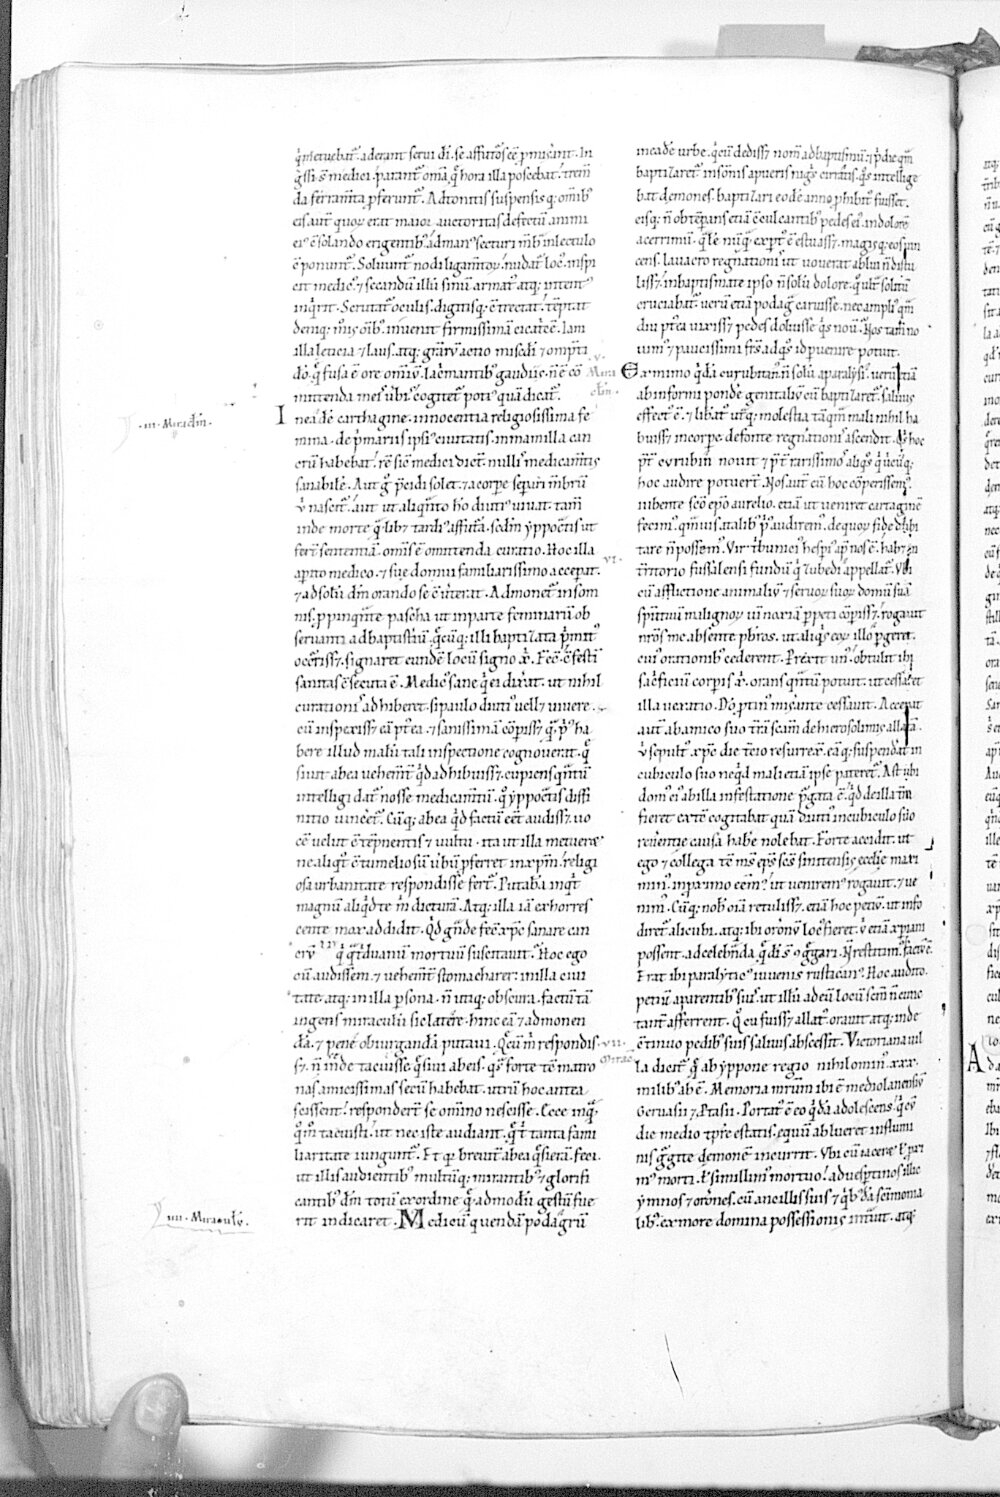 q̓ metuebat᷑. aderant serui dī. se affuturos eē p̄miserant. In
gssi s̄ medici. parant᷑ oma q̨ hora illa poscebat. trem̄
da ferram̄ta p̄ferunt᷑. Adtonitis suspensisq; om̄ib᷒
eis aut̄ quoꝝ erat maior auctoritas defectū animi
ei᷒ c̄solando erigentib᷒. ad man᷒ secturi m̄b̄ in lectulo
c̄ponunt᷑. Soluunt᷑ nodi ligam̄toꝝ. nudat᷑ loc᷒. inspi
cit medic᷒. ⁊ secandū illū sinū armat᷒ atq; intent᷒
inq̓rit. Scrutat᷑ oculis. digitisq; c̄trectat. tēptat
deniq; m̄is om̄ib᷒. inuenit firmissimā cicat̓cē. Iam
illa leticia ⁊ laus. atq; gr̄arū actio misc̓di ⁊ om̄pt̓i
dō. q̨ fusa ē ore om̄iū. lac̓mantib᷒ gaudiis. n̄ ē cō
mittenda meis u̓bis. cogitet᷑ poti᷒ quā dicat᷑.
Ineadē carthagine. innocentia religiosissima fe
mina. de p̓mariis ipsi᷒ ciuitatis. in mamilla can
crū habebat. rē sic̄ medici dict̄. nullis medicam̄tis
sanabilē. Aut g̊ p̄cidi solet. ⁊ a corpe separi m̄brū
u᷒ nascit᷑. aut ut aliq̓nto hō diuti᷒ uiuat. tam̄
inde morte q̓libet tardi᷒ affut̓a. scd̄m yppoc̓tis ut
fert̄ sententiā. om̄is ē omittenda curatio. Hoc illa
a p̄ito medico. ⁊ sue domui familiarissimo acceperat.
⁊ ad solū dm̄ orando se c̄uerat. Admonet᷑ in som
nis. p̄pinq̓nte pascha ut in parte feminarū ob
seruanti ad baptisteriū. q̄cūq; illi baptizata p̓mit᷒
occ̓risset. signaret eundē locū signo xp̄i. Fecit. c̄festi
sanitas c̄secuta ē. Medic᷒ sane q̓ ei dixerat. ut nihil
curationis adhiberet. si paulo diuti᷒ uellet uiuere.
cū inspexisset eā p̄tea. ⁊ sanissimā cōpisset q̄ p̓us ha
bere illud malū tali inspectione cognouerat. q̄
siuit ab ea uehem̄t q̓d adhibuisset. cupiens q̓ntū
intelligi dat᷑. nosse medicam̄tū. q̊ yppoc̓tis diffi
nitio uincet᷑. Cūq; ab ea q̓d factū eēt audisset. uo
ce uelut c̄tēpnentis ⁊ uultu. ita ut illa metueret
ne aliq̊d c̄tumeliosū u̓bū p̄ferret in xp̄m. religi
osa urbanitate respondisse fert᷑. Putabā inq̓t
magnū aliq̓d te m̄ dicturā. Atq; illa iā exhorres
cente. mox addidit. Qd̄ g̓nde fecit xp̄c sanare can
crū q̓ q̓triduanū mortuū suscitauit? Hoc ego
cū audissem. ⁊ uehem̄t stomacharer. in illa ciui
tate. atq; in illa p̄sona. n̄ utiq; obscura. factū tā
ingens miraculū sic latere. hinc eā ⁊ admonen
dā. ⁊ pene obiurgandā putaui. Q̄ cū m̄ respondis
set. n̄ inde tacuisse. q̄siui ab eis. q̓s forte tc̄ matro
nas amicissimas secū habebat. utrū hoc antea
scissent. respondert̄ se om̄ino nescisse. Ecce inq̄.
q̓m̄ tacuisti. ut nec iste audiant. q̄ t̓ tanta fami
liaritate iungunt᷑. Et q̓ breuit̓ ab ea q̄sierā. feci
ut illis audientib᷒. multūq; mirantib᷒ ⁊ glorifi
cantib᷒ dm̄. totū ex ordine q̄admodū gestū fue
rit indicaret. Medicū quendā podagrū
.iii. Miraclm̄.
.iiii. Miraculū.
in eadē urbe. q̓ cū dedisset nom̄ ad baptismū. ⁊ p̓die q̓m
baptizaret᷑. in somnis a pueris nigris cirratis. q̓s intellige
bat demones. baptizari eodē anno p̄hibit᷒ fuisset.
eisq; n̄ obtēpans etiā c̄culcantib᷒ pedes ei᷒. in dolorē
acerrimū. q̓lē nūq̓ exp̄t᷒ ē estuasset. magisq; eos uin
cens. lauacro regnationis ut uouerat ablui n̄ distu
lisset. in baptismate ipso n̄ solū dolore. q̊ ult̓ solitū
cruciabat᷑. uerū etiā podag̓ caruisse. nec ampli᷒ q̓m
diu p̄tea uixisset. pedes doluisse q̓s nouit? Nos tam̄ no
uim᷒. ⁊ paucissimi fr̄s. ad q̓s id p̄uenire potuit.
Ex mimo q̓dā curubitan᷒. n̄ solū a paralysi. uerū etiā
ab informi pondē genitaliū cū baptizaret᷑. saluus
effect᷒ ē. ⁊ libat᷒ ut̓q; molestia tāq̓m mali nihil ha
buisset in corpe. de fonte regnationis ascendit. Q̓s hoc
p̄t̄ curubim nouit ⁊ p̄t̄ rarissimos aliq̓s q̓cūq;
hoc audire potuert̄. Nos aut̄ cū hoc cōperissem᷒.
iubente scō ep̄o aurelio. etiā ut ueniret cartaginē
fecim᷒. q̓muis a talib᷒ p̓us audierim᷒. de quoꝝ fide dubi
tare n̄ possem᷒. Vir t̓bunici᷒ hesperi᷒ ap̄ nos ē. habet in
territorio fussalensi fundū q̓ zubedi appellat᷑. Vbi
cū afflictione animaliū ⁊ seruoꝝ suoꝝ domū suā
sp̄ituū malignoꝝ uim noxiā p̄peti cōpisset. rogauit
nr̄os me absente pbr̄os. ut aliq̓s eoꝝ illo p̄geret.
cui᷒ orationib᷒ cederent. Prexit un᷒. obtulit ibi
sac̓ficiū corpis xp̄i. orans q̓ntū potuit. ut cessaret
illa uexatio. Dō p̄tin᷒ misante cessauit. Accepat
aut̄ ab amico suo trā scām de hierosolimis allatā.
u᷒ sepult᷒ xp̄c die t̓cio resurrexit. eāq; suspendat in
cubiculo suo ne q̓d mali etiā ipse pateret᷑. Ast ubi
dom᷒ ei᷒ ab illa infestatione p̄gata ē. q̓d de illa tr̄a
fieret exte cogitabat. quā diuti᷒ in cubiculo suo
reuēntie causa habē nolebat. Forte accidit. ut
ego ⁊ collega tc̄ m̄s ep̄s scs̄ sinitensis ecclie maxi
min᷒. in p̄ximo eēm᷒. ut ueniremus rogauit. ⁊ ue
nim᷒. Cūq; nob̄ oīa retulisset. etiā hoc petiuit. ut info
diret᷑ alicubi. atq; ibi or̄onū loc᷒ fieret. u᷒ etiā xp̄iani
possent. ad celeb̓nda q̄ dī s̄ ꝯg̓gari. N̄ restitim᷒. factū ē.
Erat ibi paralytic᷒ iuuenis rustican᷒. Hoc audito.
petiuit a parentib᷒ suis. ut illū ad eū locū scm̄ n̄ cunc
tant̓ afferrent. Q̊ cū fuisset allat᷒. orauit. atq; inde
c̄tinuo pedib᷒ suis saluus abscessit. Victoriana uil
la dicit᷑. q̄ ab yppone regio nihilomin᷒ .xxx.
milib᷒ abē. Memoria mr̄um ibi ē mediolanensiū
Geruasii ⁊ Ptasii. Portat᷒ ē eo q̓dā adolescens. q̓ cū
die medio tp̄re estatis. equū ablueret in flumi
nis g̓gite demonē incurrit. Vbi cū iaceret u᷒ p̄xi
m᷒ morti. u᷒ simillim᷒ mortuo. ad uesp̄tinos illic
ymnos ⁊ or̄ones. cū ancillis suis ⁊ q̓b᷒dā sc̄imonia
lib᷒. ex more domina possessionis intrauit. atq;
.v. Mira
clm̄.
.vi.
.vii.
Mirac̄